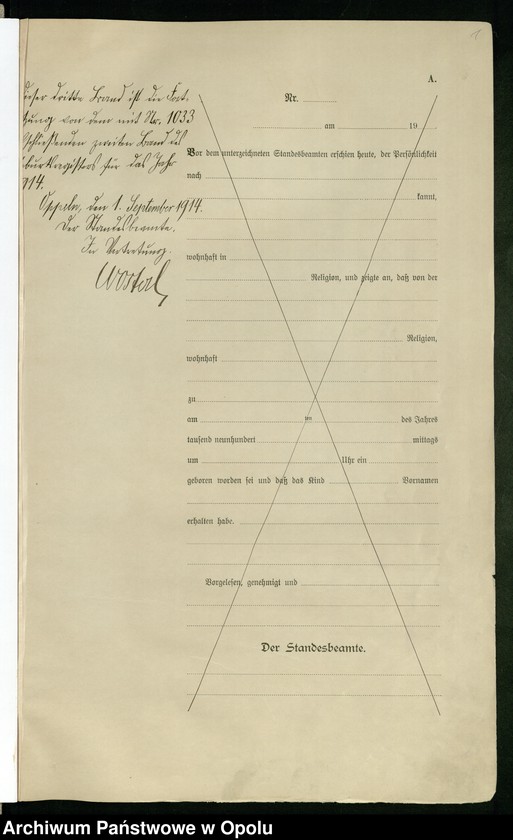 A.
dieser dritte Band ist die Fort-
zung von dem mit Nr. 1033
schließenden zweiten Band des
burtsregisters für das Jahr
914.
Oppeln, den 1. September 1914.
Der Standesbeamte.
In Vertretung.
Nr.
am 19
Vor dem unterzeichneten Standesbeamten erschien heute, der Persönlichkeit
nach
kannt,
wohnhaft in
Religion, und zeigte an, daß von der
Religion,
wohnhaft
zu
am ten des Jahres
tausend neunhundert mittags
um Uhr ein
geboren worden sei und daß das Kind Vornamen
erhalten habe.
Vorgelesen, genehmigt und
Der Standesbeamte.
Archiwum Państwowe w Opolu